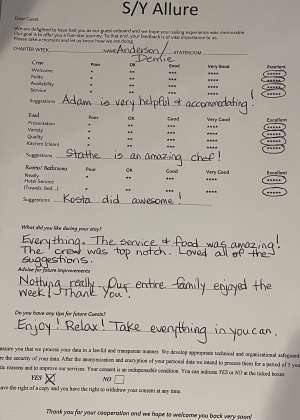 S/Y Allure
Dear Guest,
We are delighted to have had you as our guest onboard and we hope your sailing experience was memorable.
Our goal is to offer you a five-star journey. To that end, your feedback is of vital importance to us.
Please take a moment and let us know how we are doing.
CHARTER WEEK NAME Anderson/ STATEROOM
Demie
Crew Poor OK Good Very Good Excellent
Welcome * ** *** **** *****
Polite * ** *** **** *****
Availability * ** *** **** *****
Service * ** *** **** *****
Suggestions Adam is very helpful & accommodating!
Food Poor OK Good Very Good Excellent
Presentation * ** *** **** *****
Variety * ** *** **** *****
Quality * ** *** **** *****
Kitchen (clean) * ** *** **** *****
Suggestions Stathe is an amazing chef!
Rooms/ Bathrooms Poor OK Good Very Good Excellent
Neatly * ** *** **** *****
Hotel Service
(Towels, Bed...) * ** *** **** *****
Suggestions Kosta did awesome!
What did you like during your stay?
Everything. The service & food was amazing!
The crew was top notch. Loved all of the
suggestions.
Advise for future improvements
Nothing really. Our entire family enjoyed the
week! Thank You!
Do you have any tips for future Guests?
Enjoy! Relax! Take everything in you can.
assure you that we process your data in a lawful and transparent manner. We develop appropriate technical and organizational safeguards
the security of your data. After the anonymization and encryption of your personal data we intend to process them for a period of 3 years
tic reasons and to improve our services. Your consent is an indispensable condition. You can indicate YES or NO in the ticked boxes
YES NO
ave the right of a copy and you have the right to withdraw your consent at any time.
Thank you for your cooperation and we hope to welcome you back very soon!